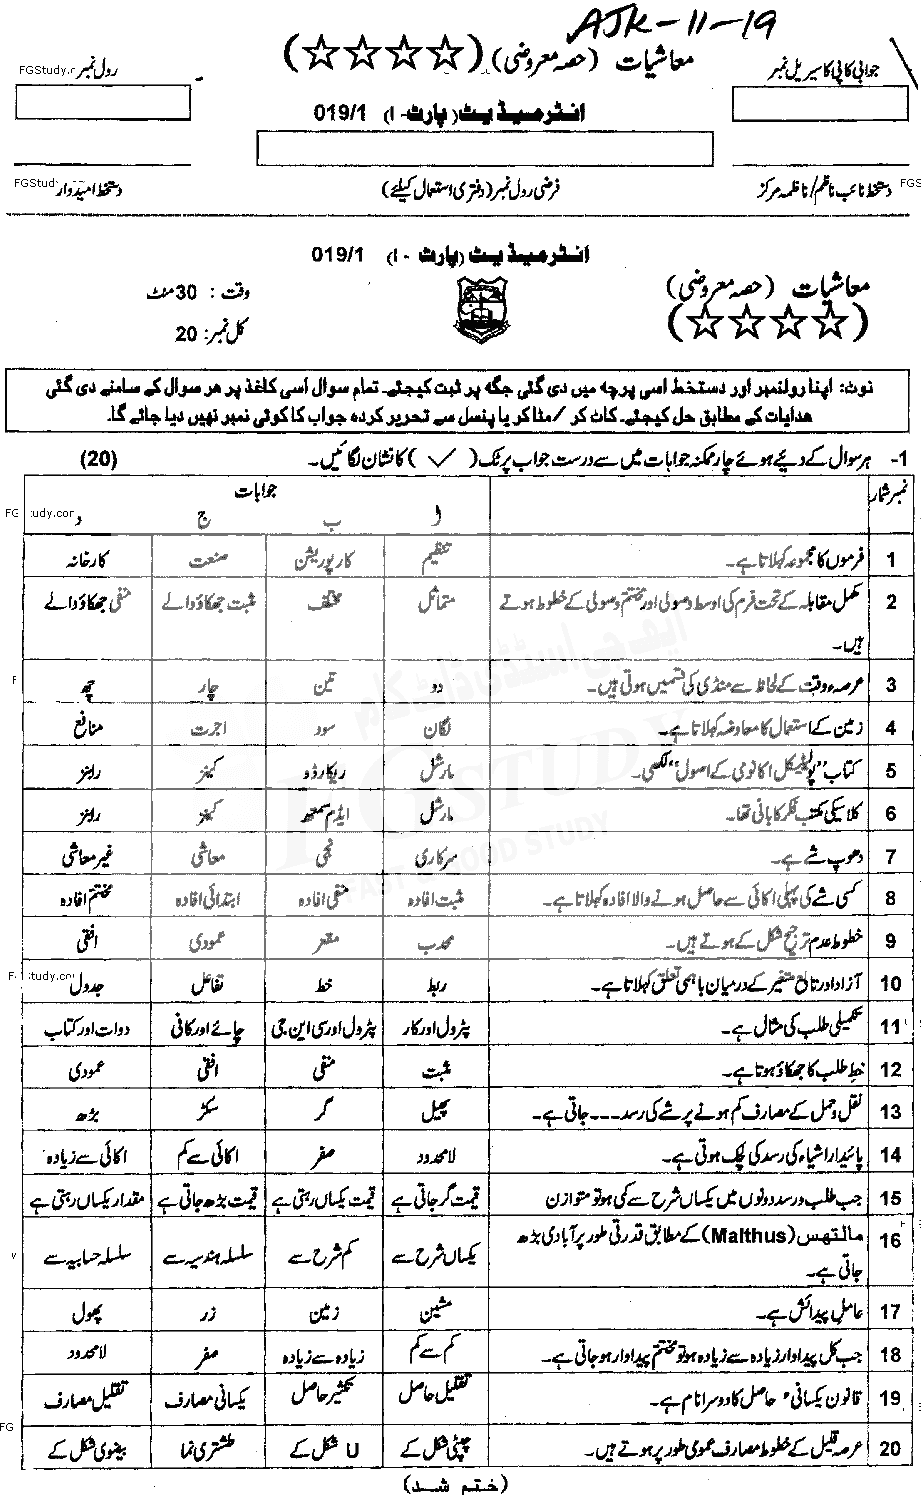 AJK-11-19
جوابی کاپی کا سیریل نمبر
معاشیات (حصہ معروضی) (☆☆☆☆)
رول نمبر
FGStudy.c
انٹرمیڈیٹ (پارٹ - I) 019/1
دستخط نائب ناظم/ناظمہ مرکز
فرضی رول نمبر (دفتری استعمال کیلئے)
دستخط امیدوار
FGStud
FGS
انٹرمیڈیٹ (پارٹ - I) 019/1
معاشیات (حصہ معروضی)
(☆☆☆☆)
وقت : 30 منٹ
کل نمبر: 20
نوٹ: اپنا رولنمبر اور دستخط اسی پرچہ میں دی گئی جگہ پر ثبت کیجئے۔ تمام سوال اسی کاغذ پر ہر سوال کے سامنے دی گئی
ہدایات کے مطابق حل کیجئے۔ کاٹ کر /مٹا کر یا پنسل سے تحریر کردہ جواب کا کوئی نمبر نہیں دیا جائے گا۔
1- ہر سوال کے دیئے ہوئے چار ممکنہ جوابات میں سے درست جواب پر ٹک (✓) کا نشان لگائیں۔ (20)
نمبر شمار جوابات
ا ب ج د
FG
tudy.con
1 فرموں کا مجموعہ کہلاتا ہے۔ تنظیم کارپوریشن صنعت کارخانہ
2 مکمل مقابلہ کے تحت فرم کی اوسط وصولی اور مختتم وصولی کے خطوط ہوتے متماثل مختلف مثبت جھکاؤ والے منفی جھکاؤ والے
ہیں۔
3 عرصہ وقت کے لحاظ سے منڈی کی قسمیں ہوتی ہیں۔ دو تین چار چھ
4 زمین کے استعمال کا معاوضہ کہلاتا ہے۔ لگان سود اجرت منافع
5 کتاب "پولیٹیکل اکانومی کے اصول" لکھی۔ مارشل ریکارڈو کینز رابنز
6 کلاسیکی مکتب فکر کا بانی تھا۔ مارشل ایڈم سمتھ کینز رابنز
7 دھوپ شے ہے۔ سرکاری نجی معاشی غیر معاشی
8 کسی شے کی پہلی اکائی سے حاصل ہونے والا افادہ کہلاتا ہے۔ مثبت افادہ منفی افادہ ابتدائی افادہ مختتم افادہ
9 خطوط عدم ترجیح شکل کے ہوتے ہیں۔ محدب مقعر عمودی افقی
10 آزاد اور تابع متغیر کے درمیان باہمی تعلق کہلاتا ہے۔ ربط خط تفاعل جدول
11 تکمیلی طلب کی مثال ہے۔ پٹرول اور کار پٹرول اور سی این جی چائے اور کافی دوات اور کتاب
12 خط طلب کا جھکاؤ ہوتا ہے۔ مثبت منفی افقی عمودی
13 نقل و حمل کے مصارف کم ہونے پر شے کی رسد ---- جاتی ہے۔ پھیل گر سکڑ بڑھ
14 پائیدار اشیاء کی رسد کی لچک ہوتی ہے۔ لا محدود صفر اکائی سے کم اکائی سے زیادہ
15 جب طلب و رسد دونوں میں یکساں شرح سے کمی ہو تو متوازن قیمت گر جاتی ہے قیمت یکساں رہتی ہے قیمت بڑھ جاتی ہے مقدار یکساں رہتی ہے
16 مالتھس (Malthus) کے مطابق قدرتی طور پر آبادی بڑھ یکساں شرح سے کم شرح سے سلسلہ ہندسیہ سے سلسلہ حسابیہ سے
جاتی ہے۔
17 عامل پیدائش ہے۔ مشین زمین زر پھول
18 جب کل پیداوار زیادہ سے زیادہ ہو تو مختتم پیداوار ہو جاتی ہے۔ کم سے کم زیادہ سے زیادہ صفر لا محدود
19 قانون یکسانیء حاصل کا دوسرا نام ہے۔ تقلیل حاصل تکثیر حاصل یکسانی مصارف تقلیل مصارف
20 عرصہ قلیل کے خطوط مصارف عمومی طور پر ہوتے ہیں۔ چپٹی شکل کے U شکل کے طشتری نما بیضوی شکل کے
(ختم شد)
ایف جی اسٹڈی ڈاٹ کام
FGSTUDY
FAST & GOOD STUDY